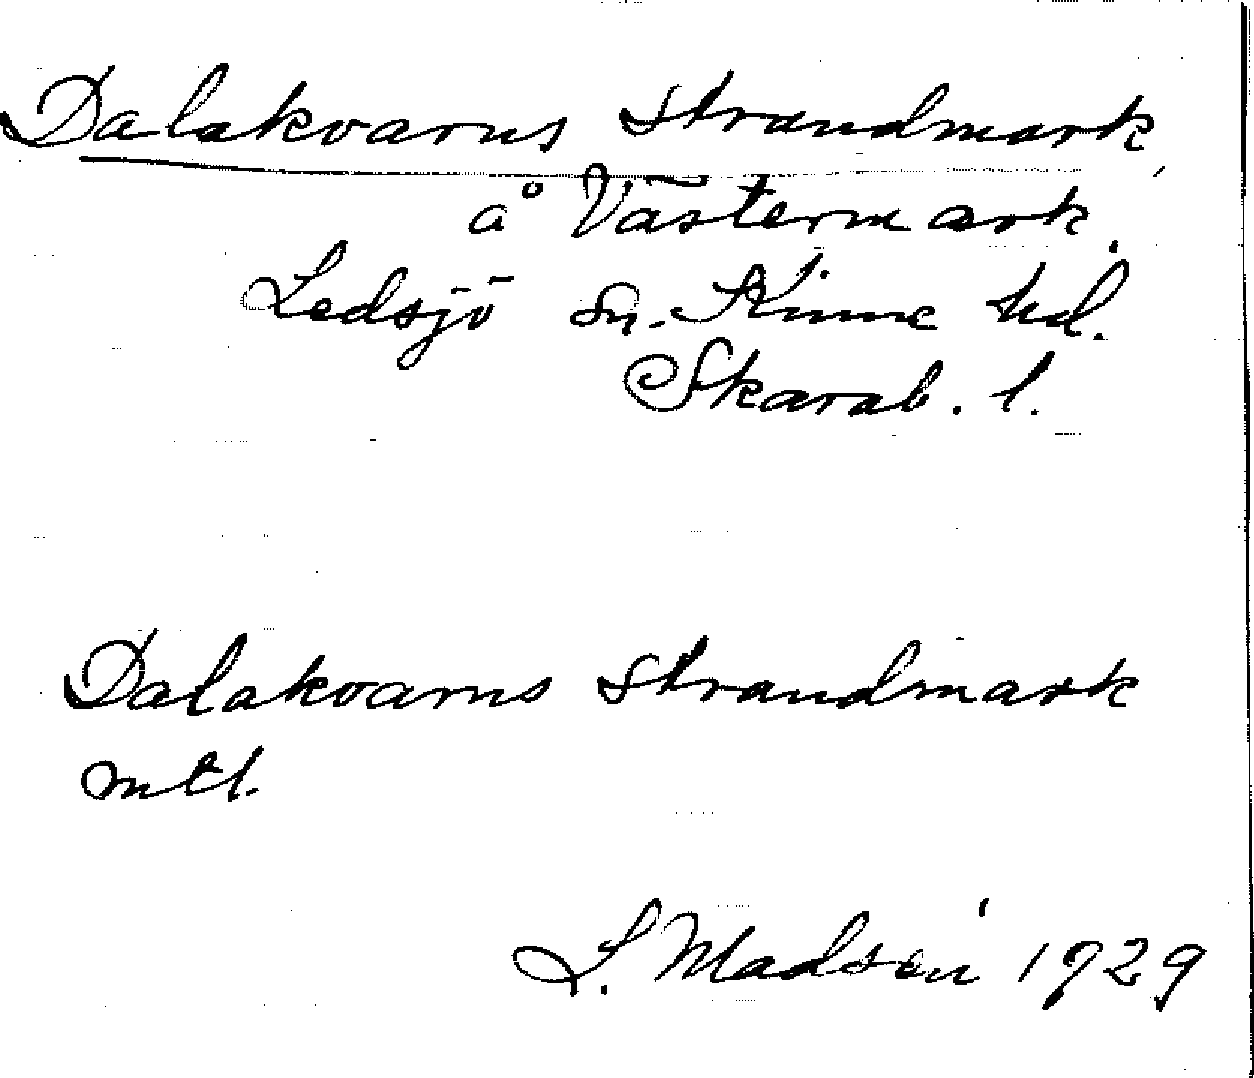 Dalakvarns Strandmark,
å Västermark,
Ledsjö Sn. Kinne hd.
Skarab. l.
Dalakvarns Strandmark
mtl.
L. Madsén 1929